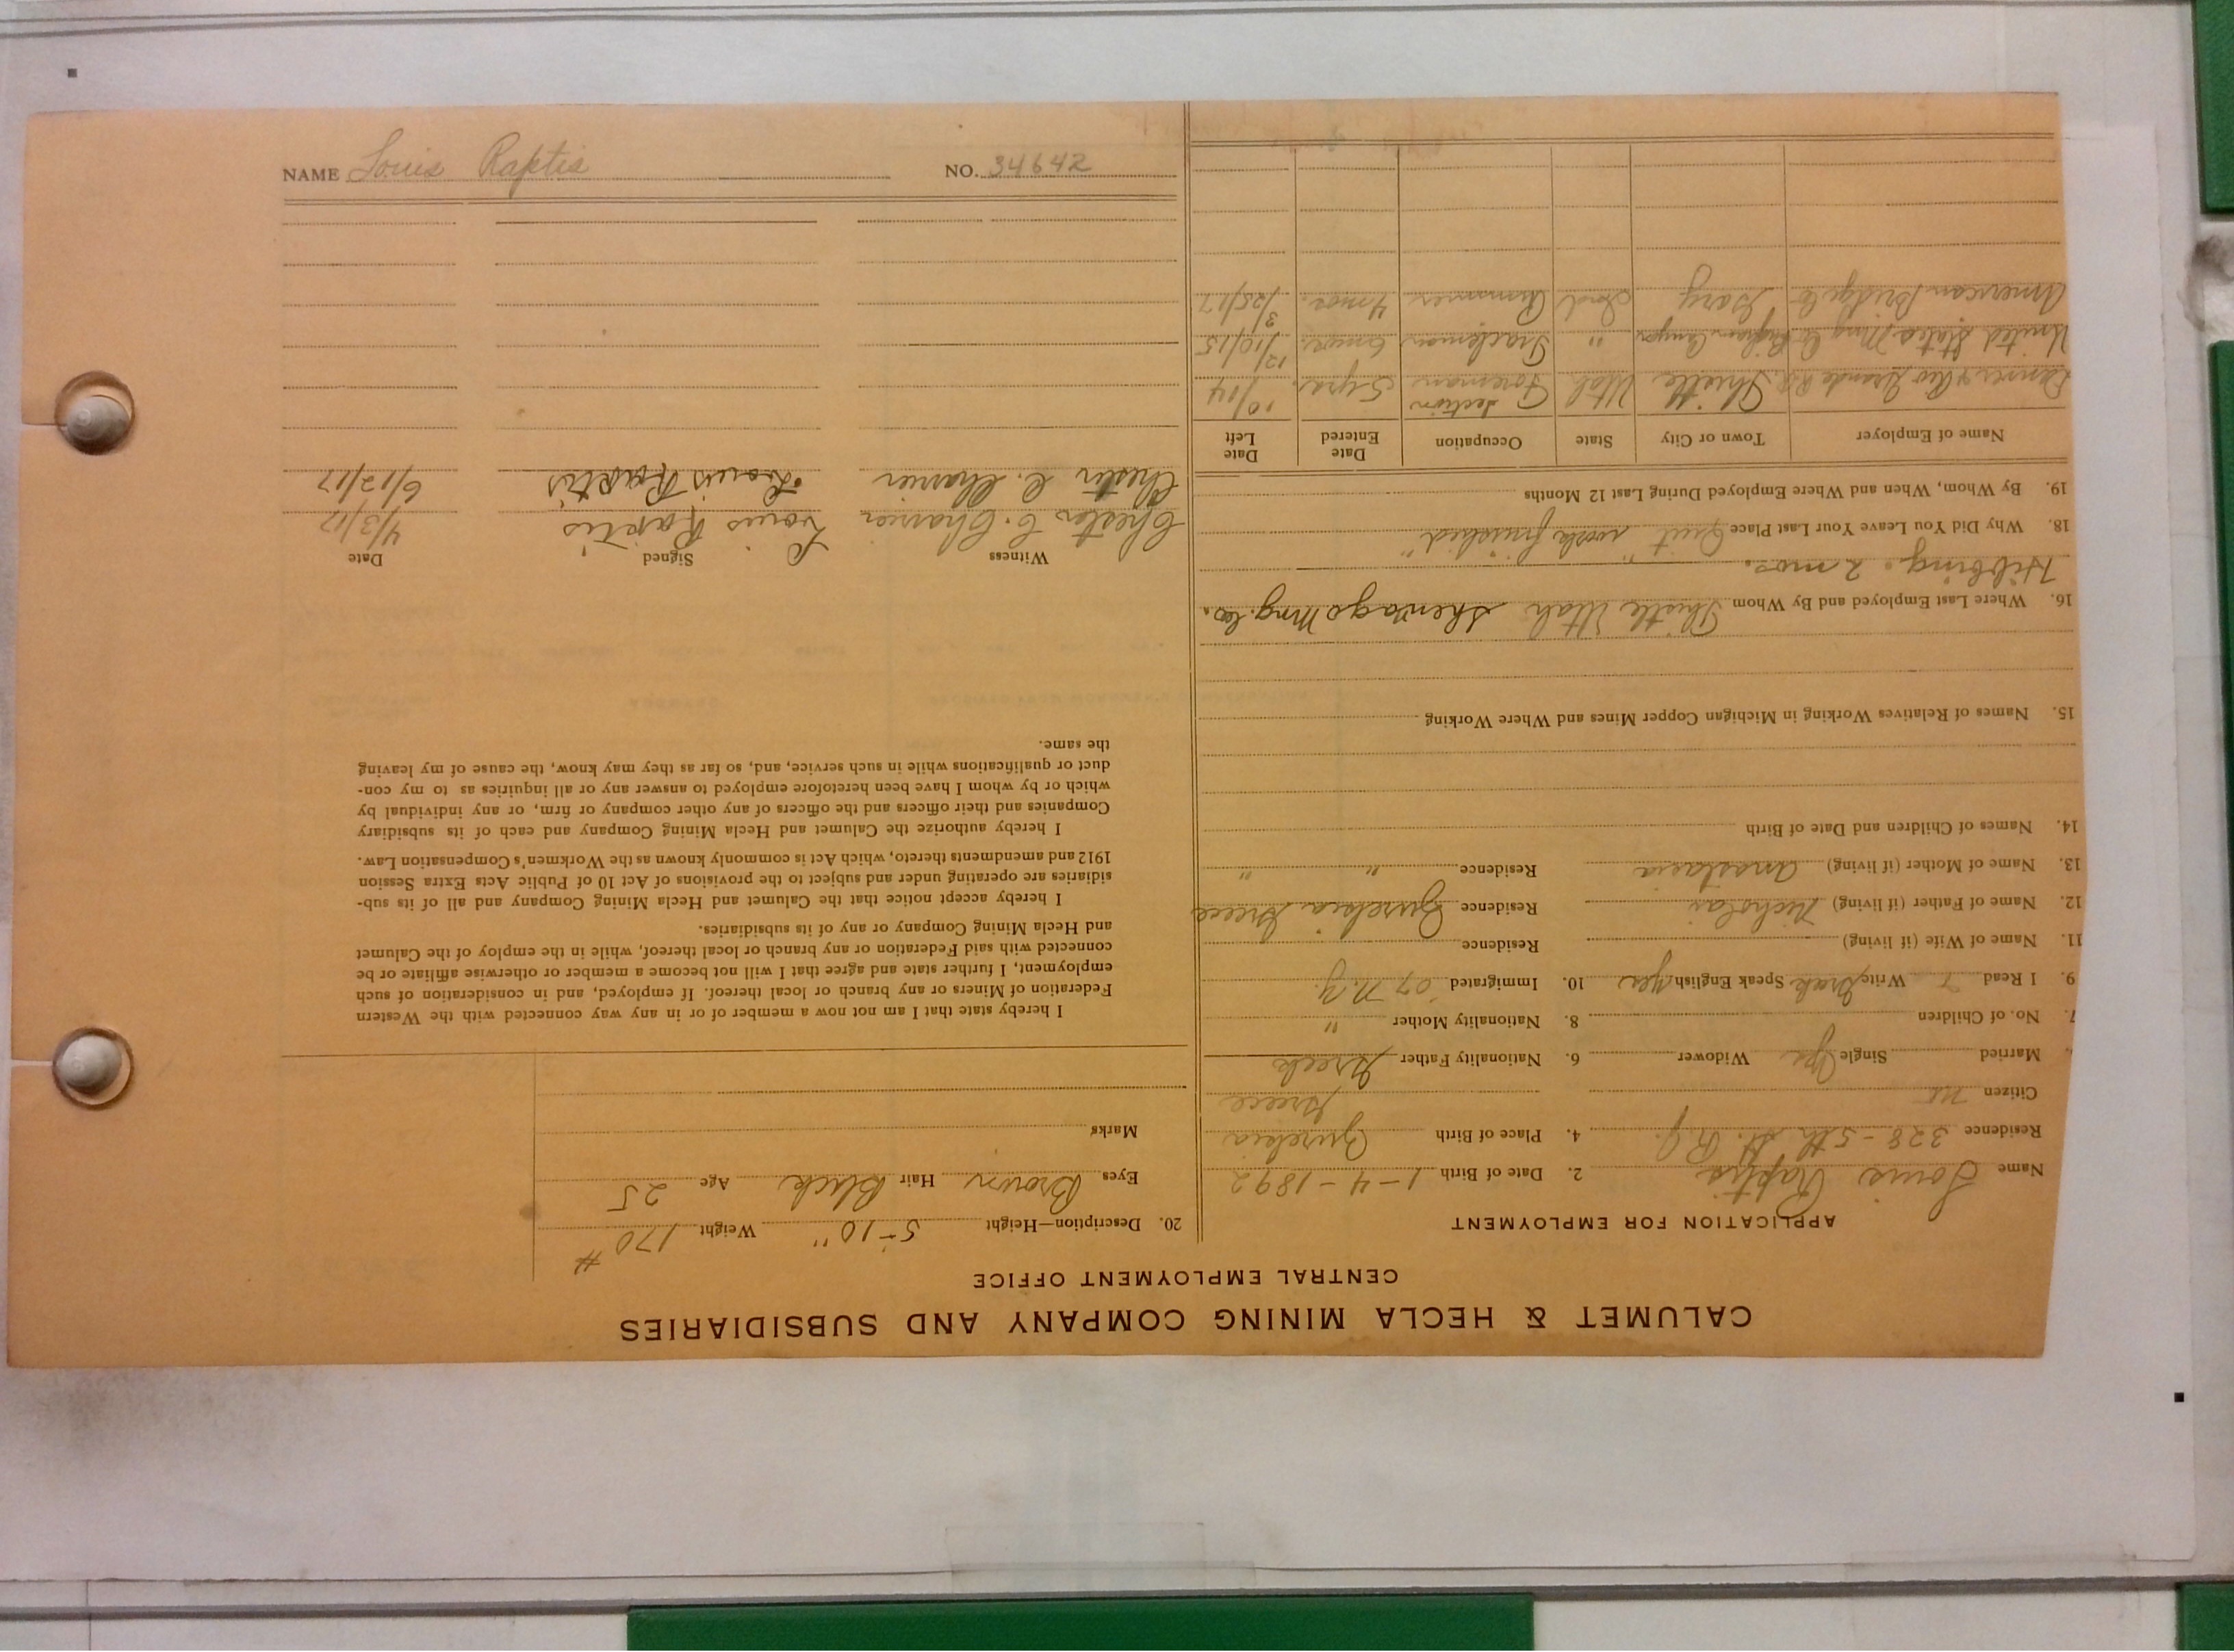 CALUMET & HECLA MINING COMPANY AND SUBSIDIARIES
CENTRAL EMPLOYMENT OFFICE
APPLICATION FOR EMPLOYMENT
Name Louis Raptis 2. Date of Birth 1-4-1892
Residence 328-5th St. R.J. 4. Place of Birth
Greece
Citizen no
Married Single Yes Widower 6. Nationality Father Greek
7. No. of Children 8. Nationality Mother "
9. I Read Write Greek Speak English yes 10. Immigrated '07 N.Y.
11. Name of Wife (if living) Residence
12. Name of Father (if living) Nicholas Residence Greece
13. Name of Mother (if living) Anastasia Residence " "
14. Names of Children and Date of Birth
15. Names of Relatives Working in Michigan Copper Mines and Where Working
16. Where Last Employed and By Whom Thistle Utah Shenago Mng. Co.
Hibbing. 2 mos.
18. Why Did You Leave Your Last Place Quit "work finished"
19. By Whom, When and Where Employed During Last 12 Months
Name of Employer Town or City State Occupation Date Entered Date Left
Denver & Rio Grande R.R. Thistle Utah Section Foreman 5 yrs. 10/14
United States Mng Co Bingham Canyon " Trackman 6 mos. 12/10/15
American Bridge Co Gary Ind 4 mos. 3/25/17
20. Description—Height 5-10" Weight 170#
Eyes Brown Hair Black Age 25
Marks
I hereby state that I am not now a member of or in any way connected with the Western
Federation of Miners or any branch or local thereof. If employed, and in consideration of such
employment, I further state and agree that I will not become a member or otherwise affiliate or be
connected with said Federation or any branch or local thereof, while in the employ of the Calumet
and Hecla Mining Company or any of its subsidiaries.
I hereby accept notice that the Calumet and Hecla Mining Company and all of its sub-
sidiaries are operating under and subject to the provisions of Act 10 of Public Acts Extra Session
1912 and amendments thereto, which Act is commonly known as the Workmen's Compensation Law.
I hereby authorize the Calumet and Hecla Mining Company and each of its subsidiary
Companies and their officers and the officers of any other company or firm, or any individual by
which or by whom I have been heretofore employed to answer any or all inquiries as to my con-
duct or qualifications while in such service, and, so far as they may know, the cause of my leaving
the same.
Witness Signed Date
Chester C. Charier Louis Raptis 4/3/17
Chester C. Charier Louis Raptis 6/12/17
NAME Louis Raptis NO. 34642